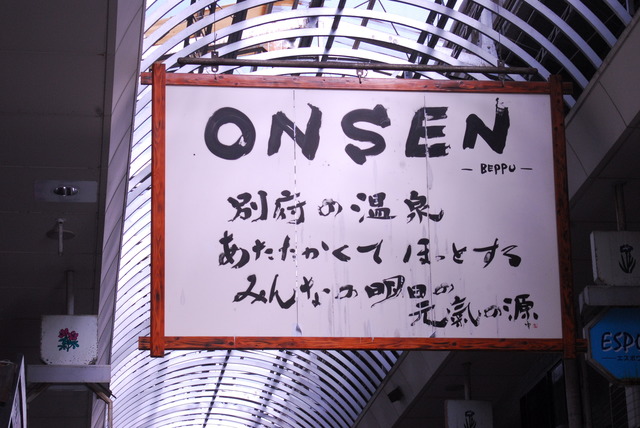 ONSEN
— BEPPU —
別府の温泉
あたたかくて ほっとする
みんなの明日の
元氣の源
ESPO